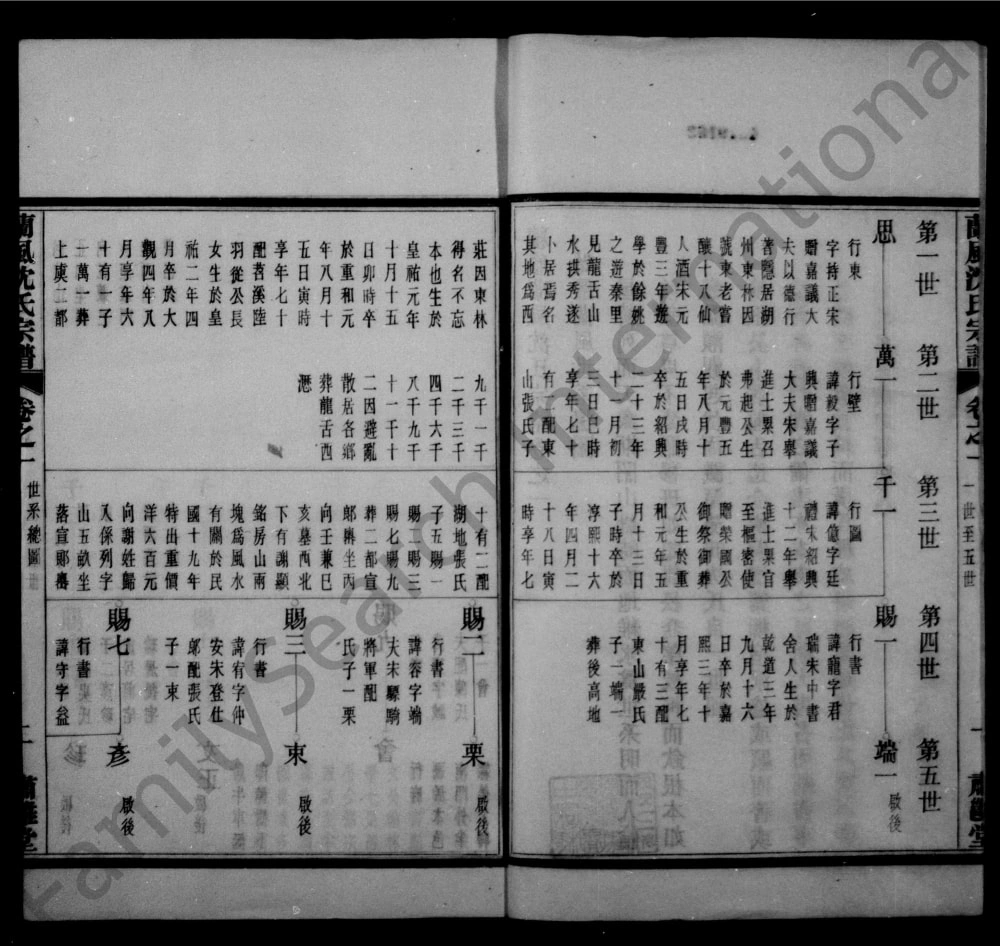 蘭風沈氏宗譜
卷之一
一世至五世
一
肅雝堂
第一世
第二世
第三世
第四世
第五世
思
萬一
千一
賜一
端一
啟後
行東
字持正宋
贈嘉議大
夫以德行
著隱居湖
州東林因
號東老嘗
釀十八仙
人酒宋元
豐三年遊
學於餘姚
之遊秦里
見龍舌山
水拱秀遂
卜居焉名
其地為西
行壁
諱毅字子
興贈嘉議
大夫宋舉
進士累召
弗起公生
於元豐五
年八月十
五日戌時
卒於紹興
二十三年
十一月初
三日巳時
享年七十
有二配東
山張氏子
行圖
諱億字廷
禮宋紹興
十二年舉
進士果官
至樞密使
贈榮國公
御祭御葬
公生於重
和元年五
月十三日
子時卒於
淳熙十六
年四月二
十八日寅
時享年七
行書
諱寵字君
瑞宋中書
舍人生於
乾道三年
九月十六
日卒於嘉
熙三年十
月享年七
十有三配
東山嚴氏
子一端一
葬後高地
莊因東林
得名不忘
本也生於
皇祐元年
十月十五
日卯時卒
於重和元
年八月十
五日寅時
享年七十
配苕溪陸
羽從公長
女生於皇
祐二年四
月卒於大
觀四年八
月享年六
十有一子
一萬一葬
上虞二都
九千一千
二千三千
四千六千
八千九千
十一千十
二因避亂
散居各鄉
葬龍舌西
灣
十有二配
湖地張氏
子五賜一
賜二賜三
賜七賜九
葬二都宣
郎嶴坐丙
向壬兼巳
亥墓西北
下有謝顯
銘房山南
塊為風水
有關於民
國十九年
特出重價
洋六百元
向謝姓歸
入係列字
山五畝坐
落宣郎嶴
賜二
栗
啟後
行書
諱容字端
夫宋驃騎
將軍配
氏子一栗
賜三
東
啟後
行書
諱有字仲
安宋登仕
郎配張氏
子一東
賜七
彥
啟後
行書
諱守字益
蘭風沈氏宗譜
卷之一
世系總圖
一
肅雝堂
FamilySearch International